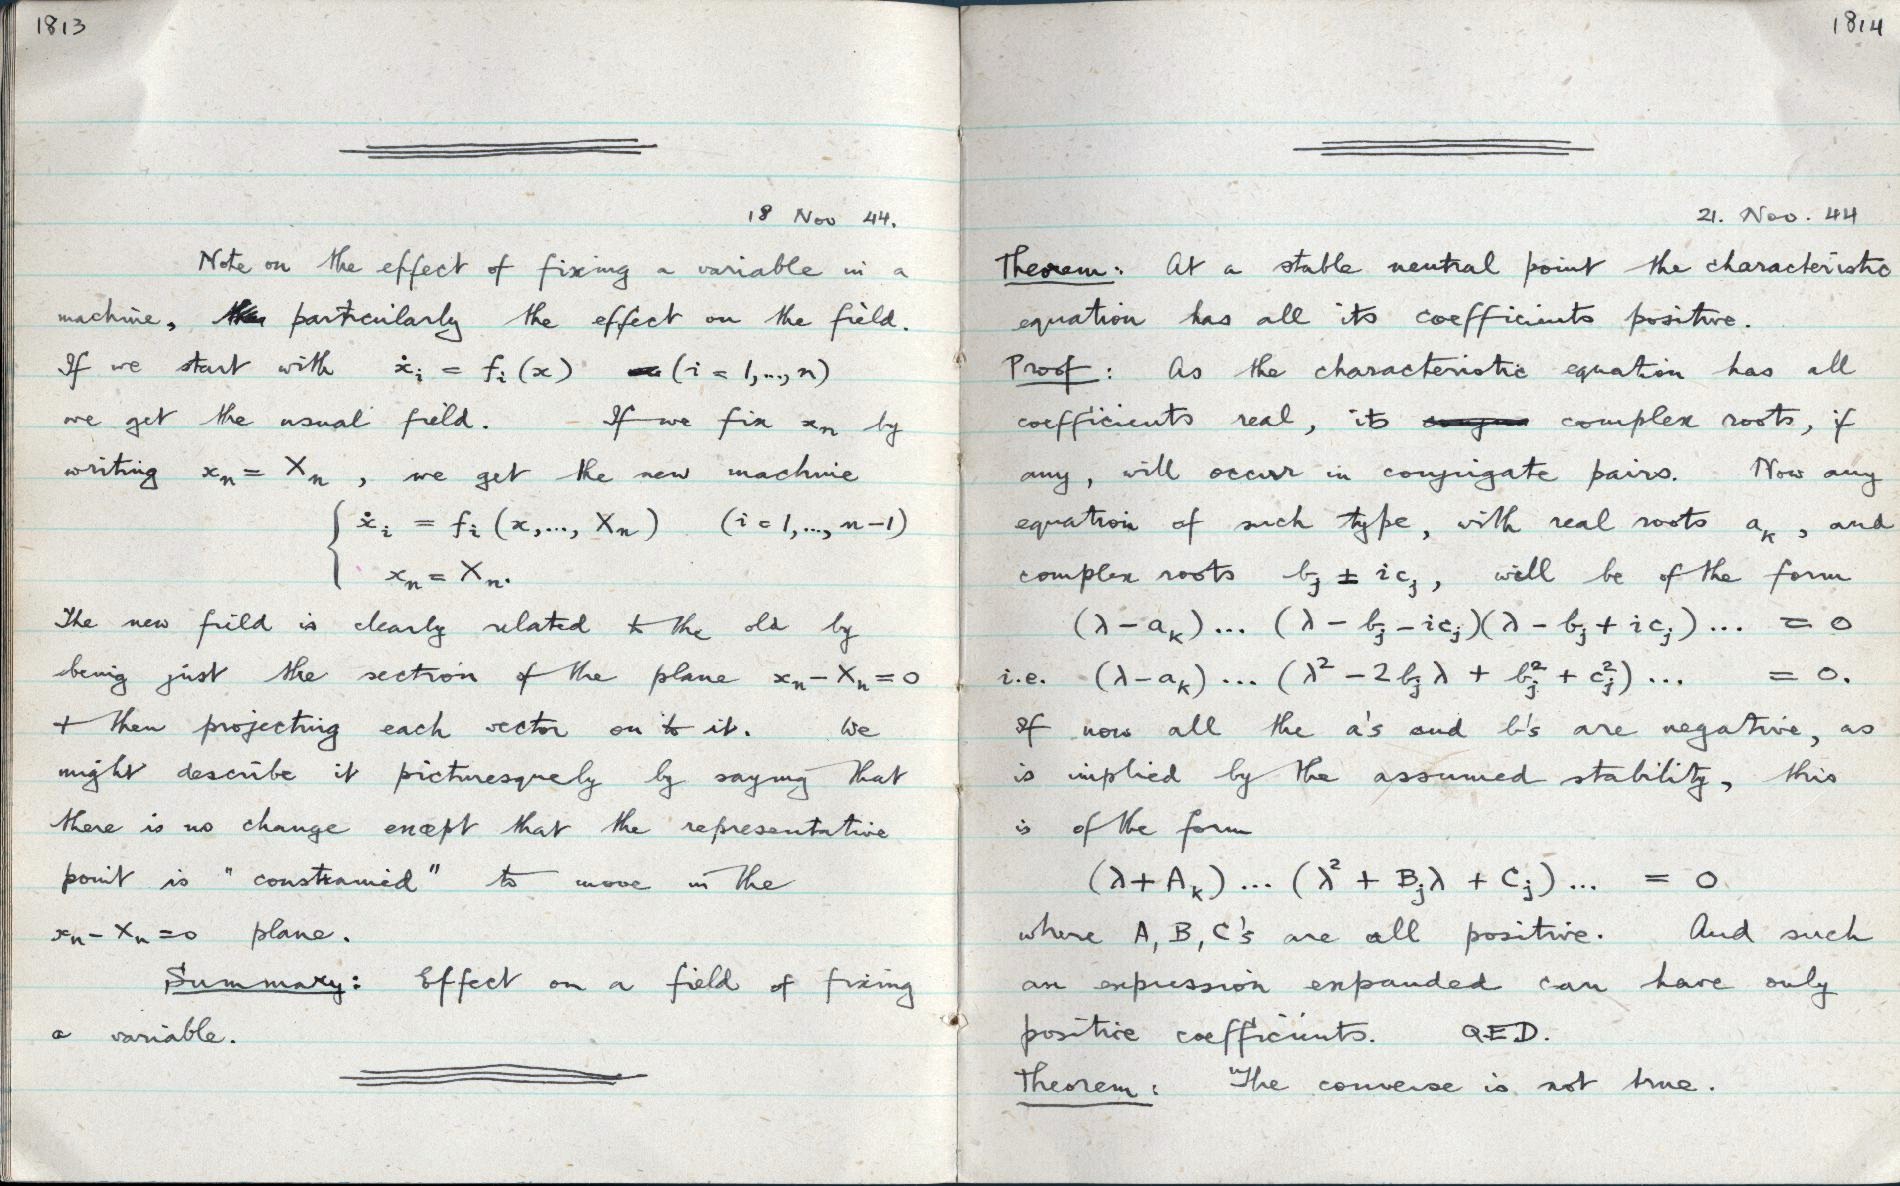 1813
18 Nov 44.
Note on the effect of fixing a variable in a
machine, particularly the effect on the field.
If we start with ẋᵢ = fᵢ(x) (i = 1,..., n)
we get the usual field. If we fix xₙ by
writing xₙ = Xₙ, we get the new machine
{ ẋᵢ = fᵢ(x,..., Xₙ) (i = 1,..., n−1)
xₙ = Xₙ.
The new field is clearly related to the old by
being just the section of the plane xₙ − Xₙ = 0
+ then projecting each vector on to it. We
might describe it picturesquely by saying that
there is no change except that the representative
point is "constrained" to move in the
xₙ − Xₙ = 0 plane.
Summary: Effect on a field of fixing
a variable.
1814
21. Nov. 44
Theorem: At a stable neutral point the characteristic
equation has all its coefficients positive.
Proof: As the characteristic equation has all
coefficients real, its complex roots, if
any, will occur in conjugate pairs. Now any
equation of such type, with real roots aₖ, and
complex roots bⱼ ± icⱼ, will be of the form
(λ − aₖ)... (λ − bⱼ − icⱼ)(λ − bⱼ + icⱼ)... = 0
i.e. (λ − aₖ)... (λ² − 2bⱼλ + bⱼ² + cⱼ²)... = 0.
If now all the a's and b's are negative, as
is implied by the assumed stability, this
is of the form
(λ + Aₖ)... (λ² + Bⱼλ + Cⱼ)... = 0
where A, B, C's are all positive. And such
an expression expanded can have only
positive coefficients. QED.
Theorem: The converse is not true.